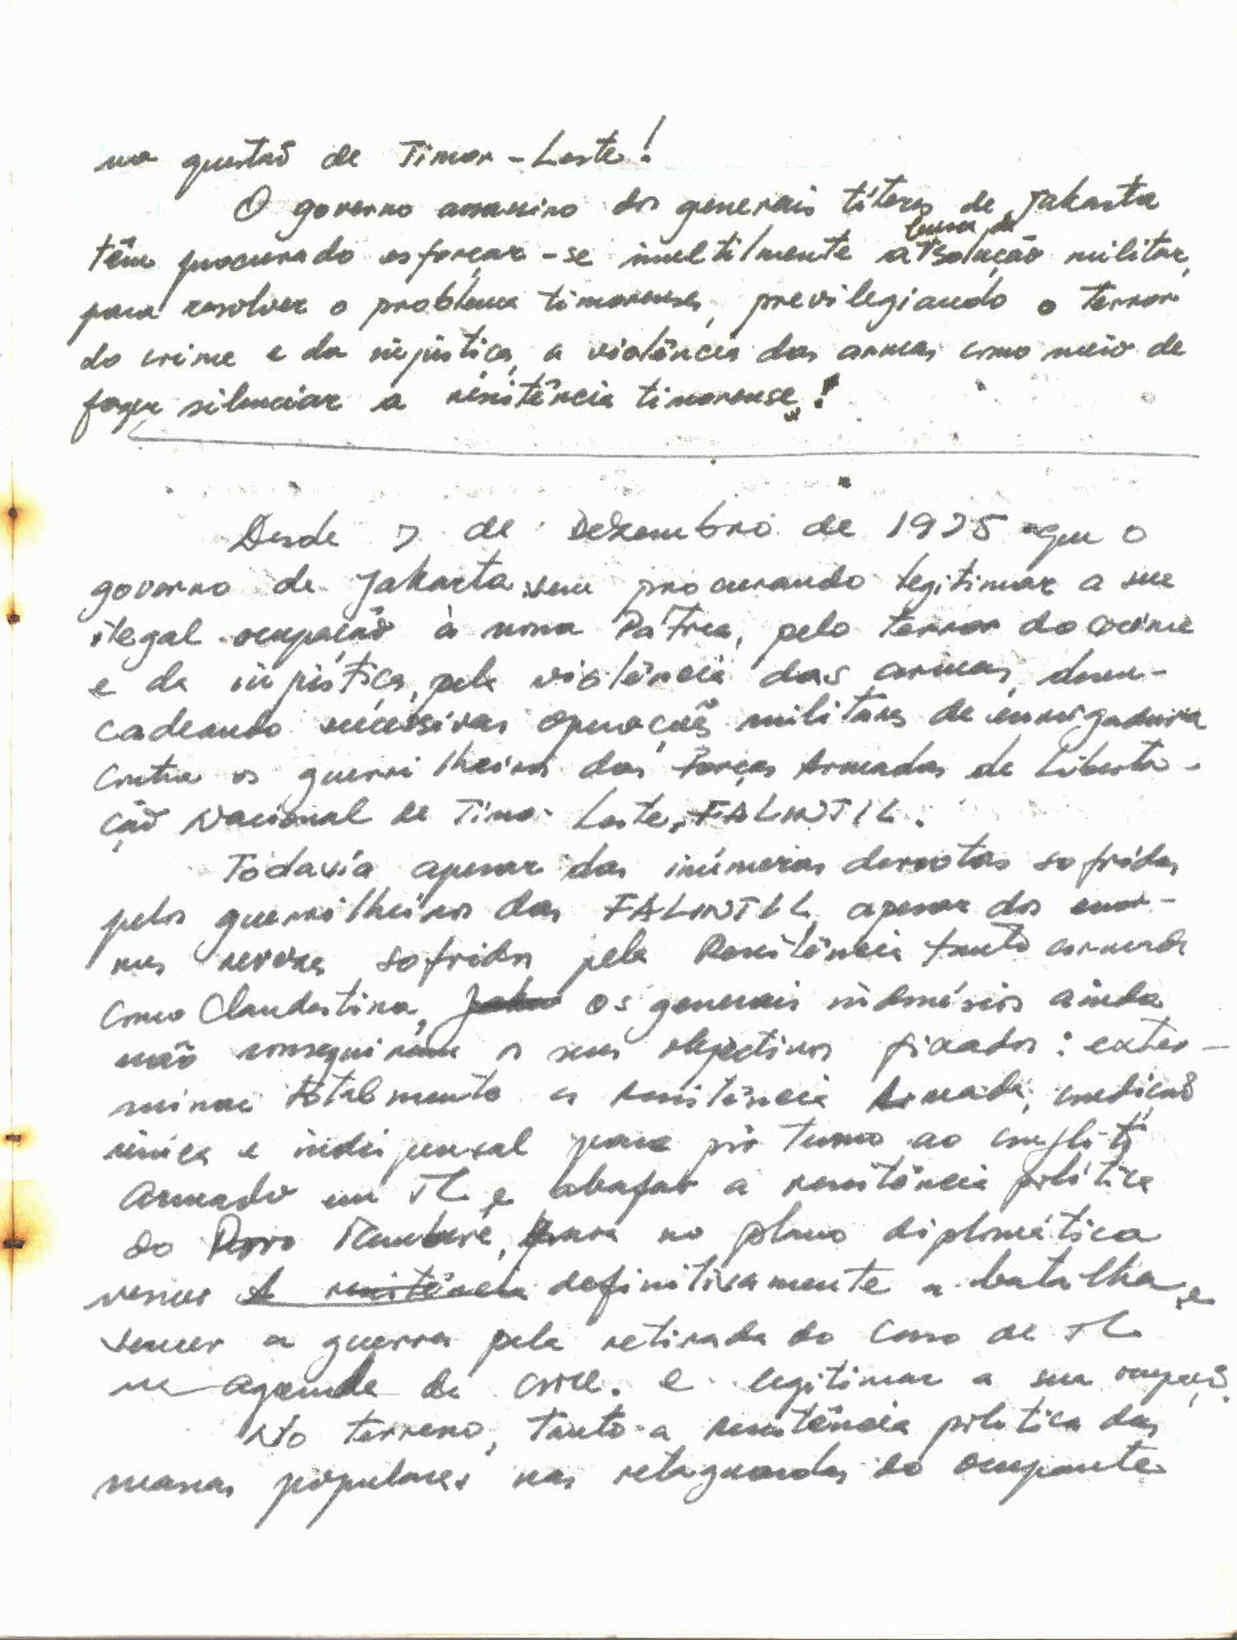 na questão de Timor-Leste!
O governo assassino dos generais títeres de Jakarta
têm procurado esforçar-se inutilmente a solução militar,
para resolver o problema timorense, previlegiando o terror
do crime e da injustiça, a violência das armas como meio de
fazer silenciar a resistência timorense!
Desde 7 de Dezembro de 1975 que o
governo de Jakarta vem procurando legitimar a sua
ilegal ocupação à nossa Pátria, pelo terror do crime
e da injustiça, pela violência das armas, desen-
cadeando sucessivas operações militares de envergadura
contra os guerrilheiros das Forças Armadas de Liberta-
ção Nacional de Timor-Leste, FALINTIL.
Todavía apesar das inúmeras derrotas sofridas
pelos guerrilheiros das FALINTIL, apesar dos enor-
mes reveses sofridos pela Resistência tanto armada
como Clandestina, os generais indonésios ainda
não conseguiram os seus objectivos fixados: exter-
minar totalmente a resistência Armada, condição
única e indispensal para pôr termo ao conflito
armado em TL e abafar a resistência política
do Povo Maubere, para no plano diplomática
vencer a resistência definitivamente a batalha e
vencer a guerra pela retirada do caso de TL
na agenda da e legitimar a sua ocupação.
No terreno, tanto a resistência política das
massas populares nas retaguardas do ocupante